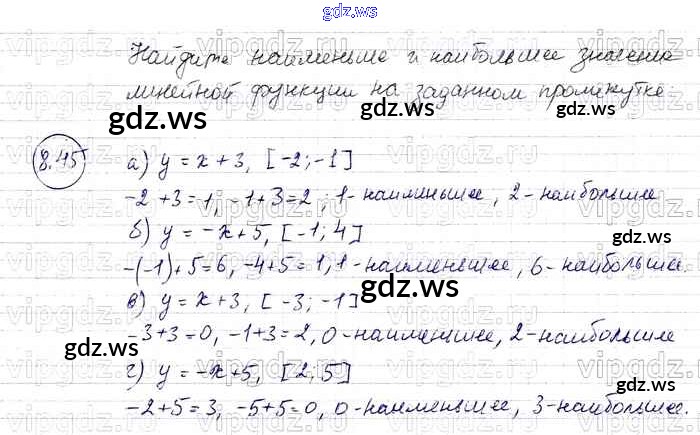 gdz.ws
Найдите наименьшее и наибольшее значение
линейной функции на заданном промежутке
gdz.ws gdz.ws
8.45 а) y = x + 3, [-2; -1]
-2 + 3 = 1, -1 + 3 = 2, 1 - наименьшее, 2 - наибольшее
gdz.ws gdz.ws
б) y = -x + 5, [-1; 4]
-(-1) + 5 = 6, -4 + 5 = 1, 1 - наименьшее, 6 - наибольшее.
в) y = x + 3, [-3; -1] gdz.ws
-3 + 3 = 0, -1 + 3 = 2, 0 - наименьшее, 2 - наибольшее
gdz.ws
г) y = -x + 5, [2; 5] gdz.ws
-2 + 5 = 3, -5 + 5 = 0, 0 - наименьшее, 3 - наибольшее.
gdz.ws